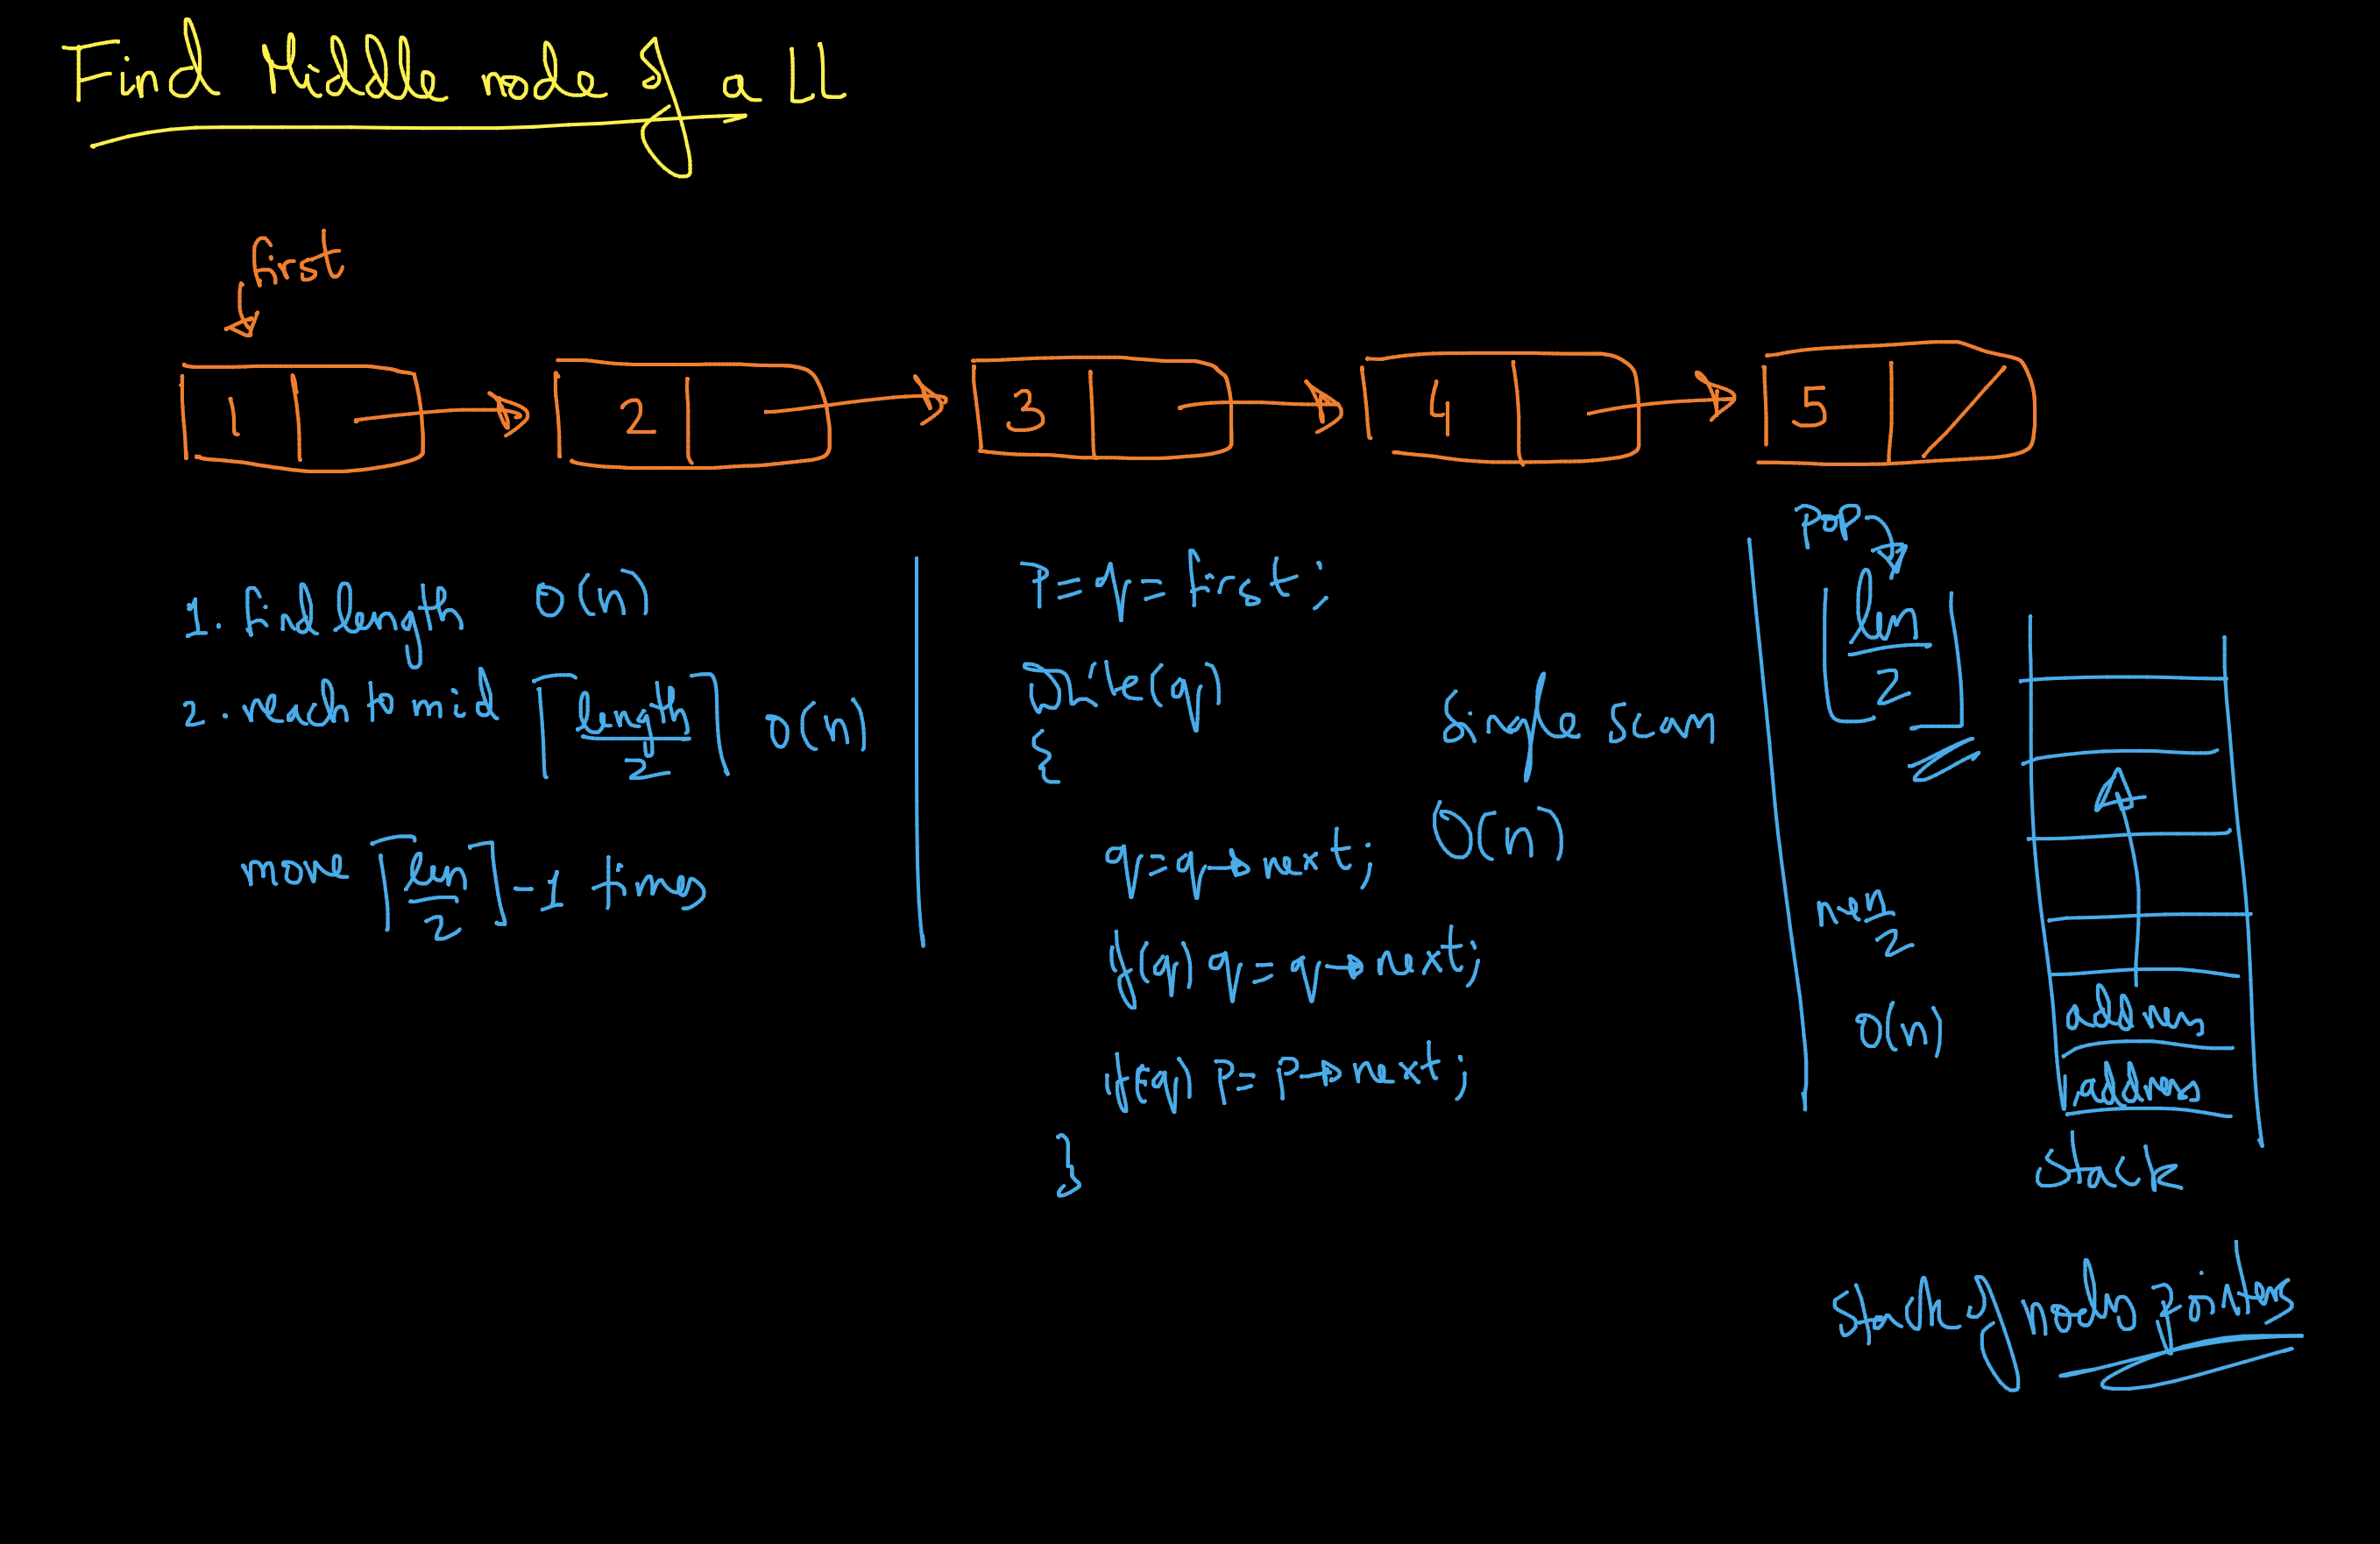 Find Middle node of a LL
first
1 2 3 4 5
1. find length O(n)
2. reach to mid ⌈length/2⌉ O(n)
move ⌈len/2⌉ -1 times
P = q = first;
While(q)
{
q = q→next;
if(q) q = q→next;
if(q) P = P→next;
}
Single scan
O(n)
POP
⌊len/2⌋
O(n)
address
address
Stack
Stack of nodes pointers